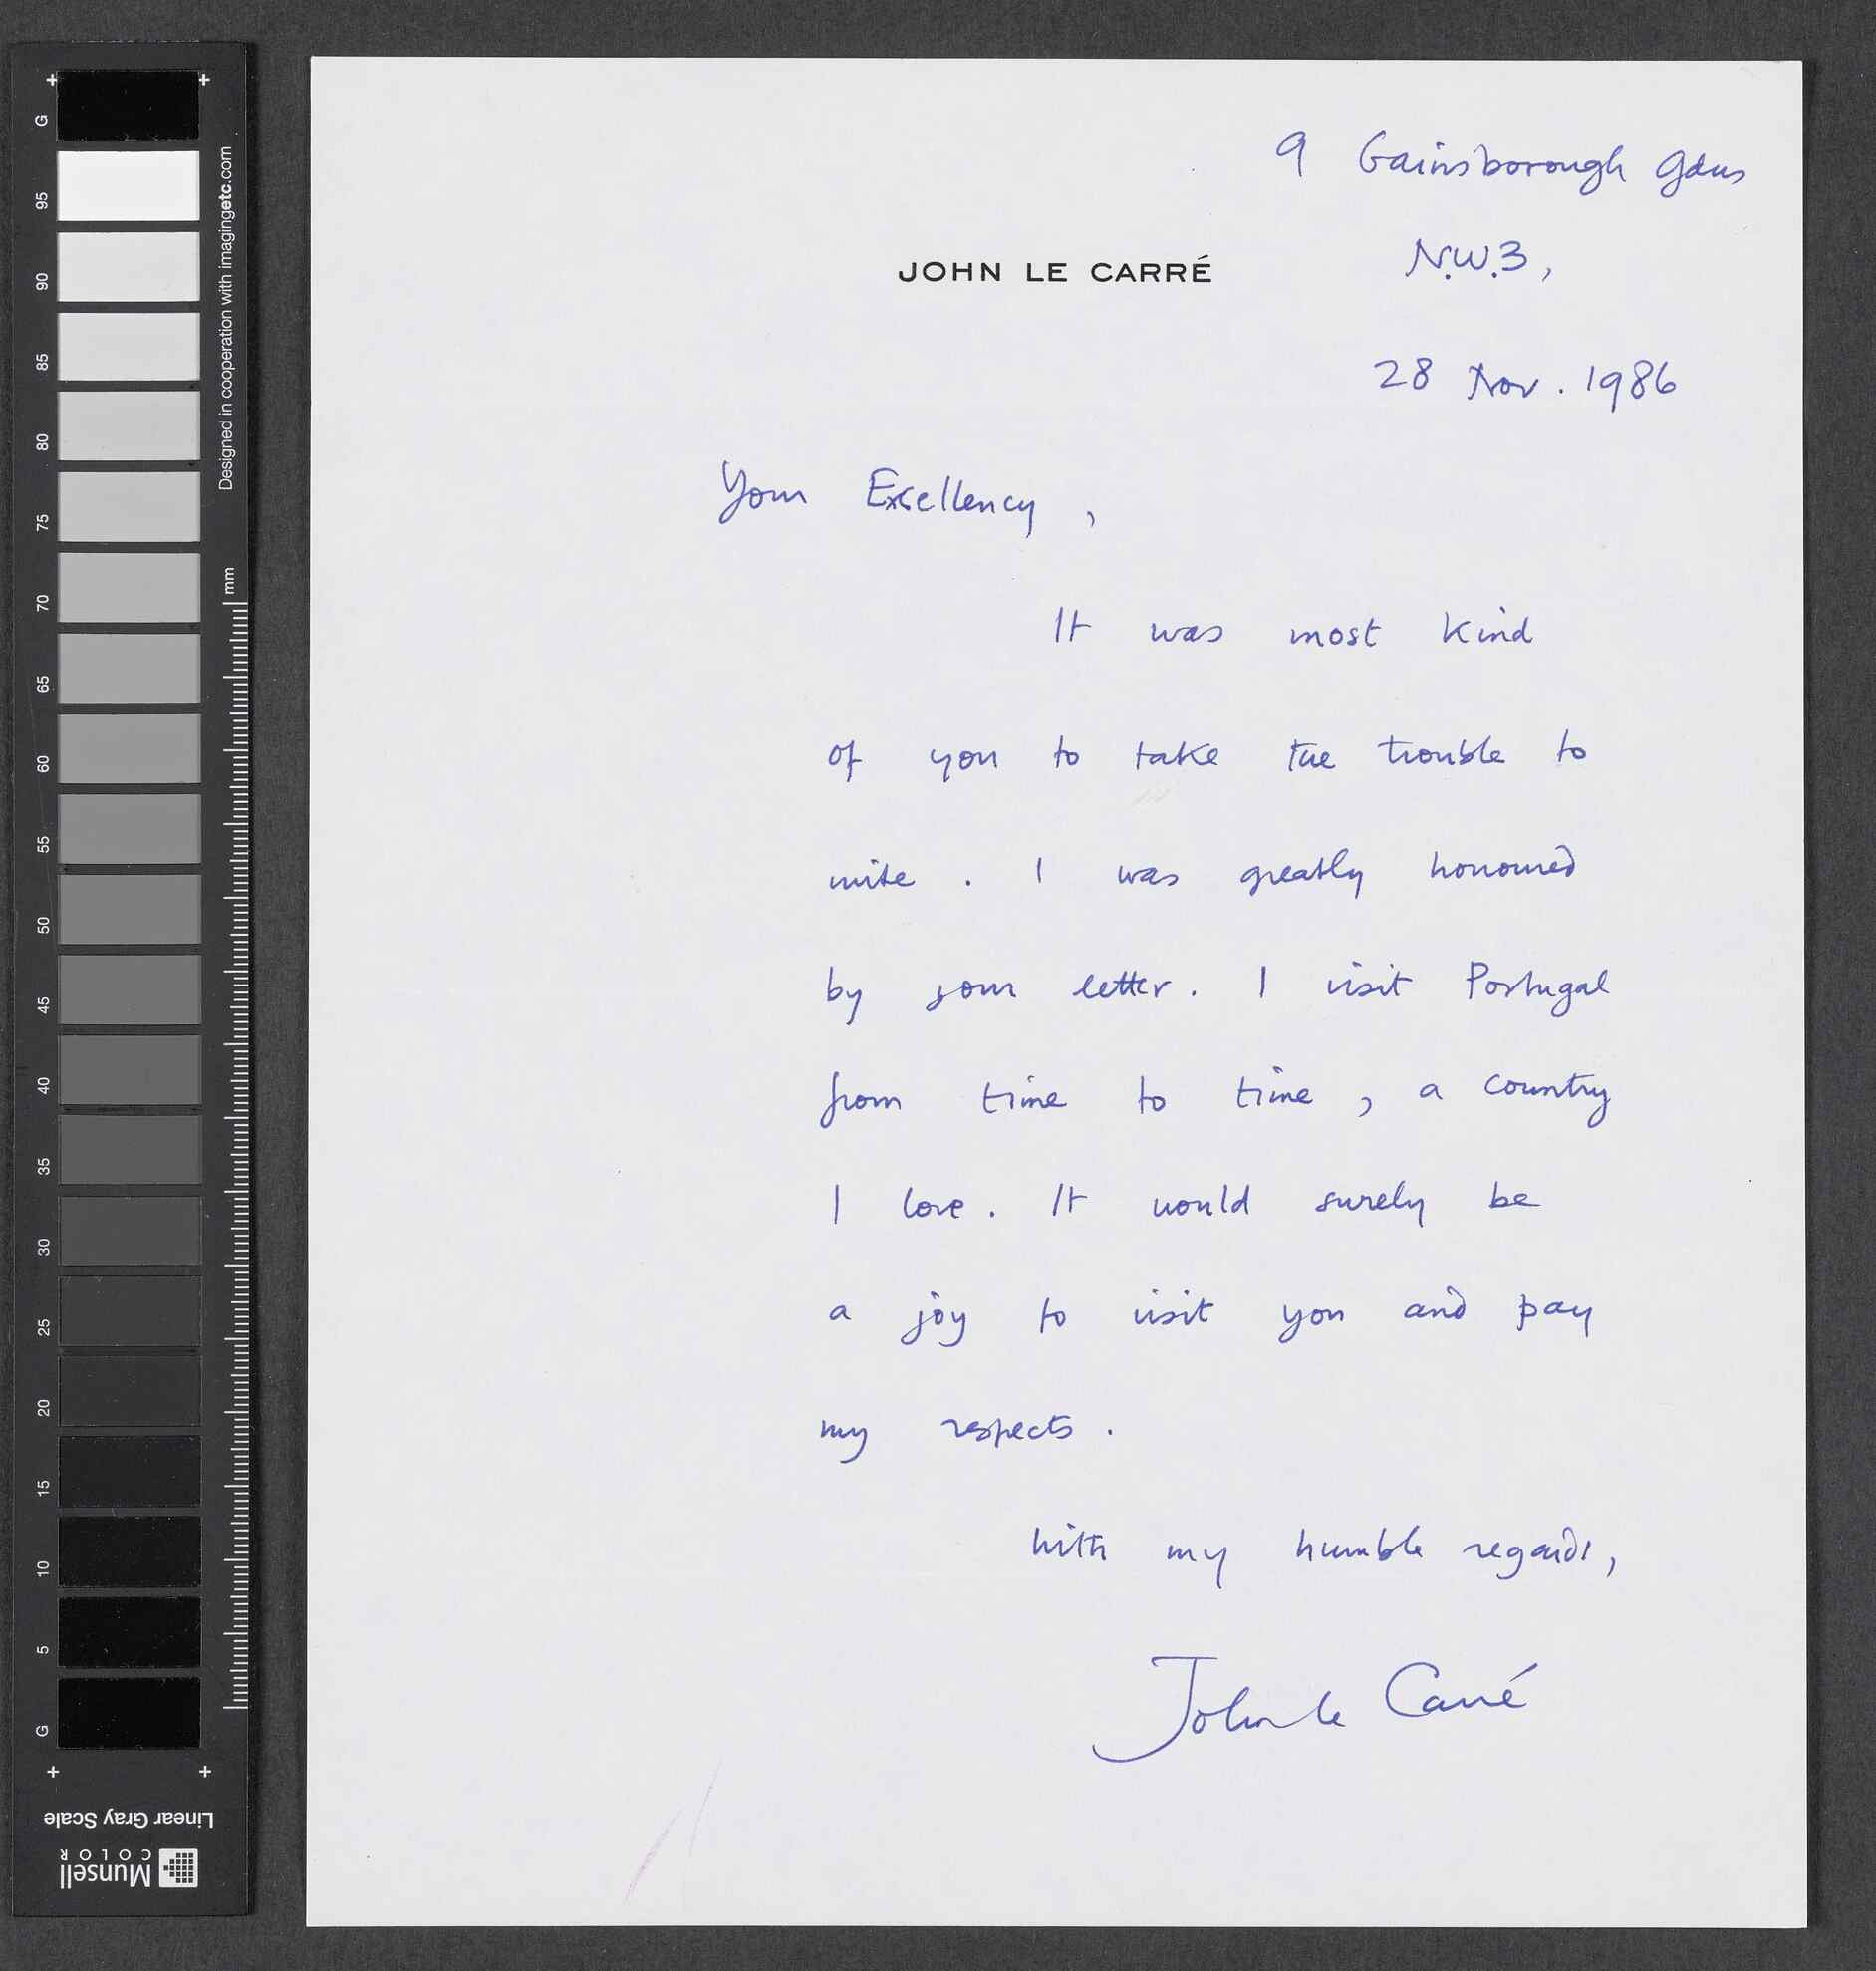 9 Gainsborough Gdns
JOHN LE CARRÉ
N.W.3,
28 Nov. 1986
Your Excellency,
It was most kind
of you to take the trouble to
write. I was greatly honoured
by your letter. I visit Portugal
from time to time, a country
I love. It would surely be
a joy to visit you and pay
my respects.
With my humble regards,
John le Carré
G
95
90
85
80
75
70
65
60
55
50
45
40
35
30
25
20
15
10
5
G
Designed in cooperation with imagingetc.com
mm
Linear Gray Scale
Munsell
COLOR